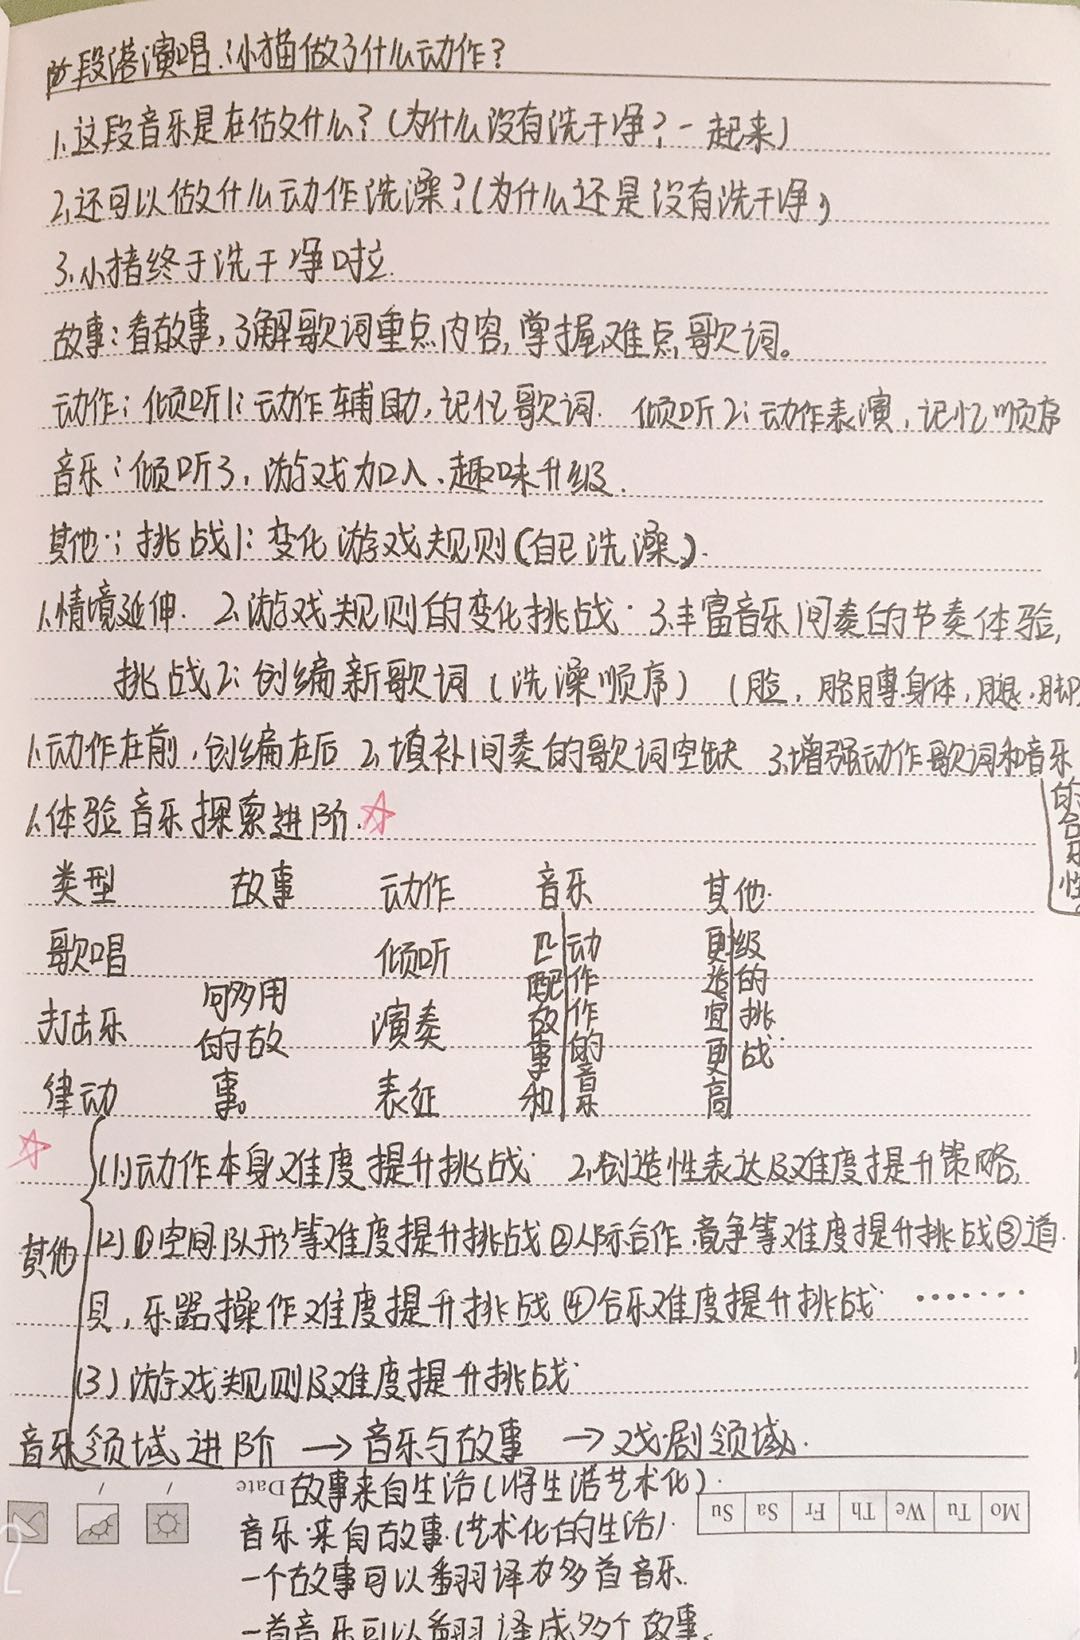 阶段港演唱:小猫做了什么动作?
1.这段音乐是在估攵什么?(为什么没有洗干净?一起来)
2.还可以做什么动作洗澡?(为什么还是没有洗干净)
3.小猪终于洗干净啦
故事:看故事,了解歌词重点内容,掌握难点歌词。
动作:倾听1:动作辅助,记忆歌词. 倾听2:动作表演,记忆顺序
音乐:倾听3,游戏加入、趣味升级.
其他:挑战1:变化游戏规则(自己洗澡).
1.情境延伸. 2.游戏规则的变化挑战 3.丰富音乐间奏的节奏体验,
挑战2:创编新歌词(洗澡顺序)(脸,胳膊身体,腿.脚
1.动作在前,创编在后 2.填补间奏的歌词空缺 3.增强动作歌词和音乐
的合乐性
1.体验音乐探索进阶.
类型 故事 动作 音乐 其他.
歌唱 倾听
打击乐 演奏
律动 表征
够多用的故事。
匹配故事和动作作的音乐
更适宜更高级的挑战
其他
(1)动作本身难度提升挑战 2.创造性表达及难度提升策略,
(2)①空间队形等难度提升挑战②人际合作.竞争等难度提升挑战③道
具,乐器操作难度提升挑战④合乐难度提升挑战 ·······
(3)游戏规则及难度提升挑战
音乐领域进阶 → 音乐与故事 → 戏剧领域.
Date 故事来自生活(将生活艺术化).
Mo Tu We Th Fr Sa Su
音乐来自故事.(艺术化的生活).
一个故事可以翻译成多首音乐.
一首音乐可以翻译成多个故事.